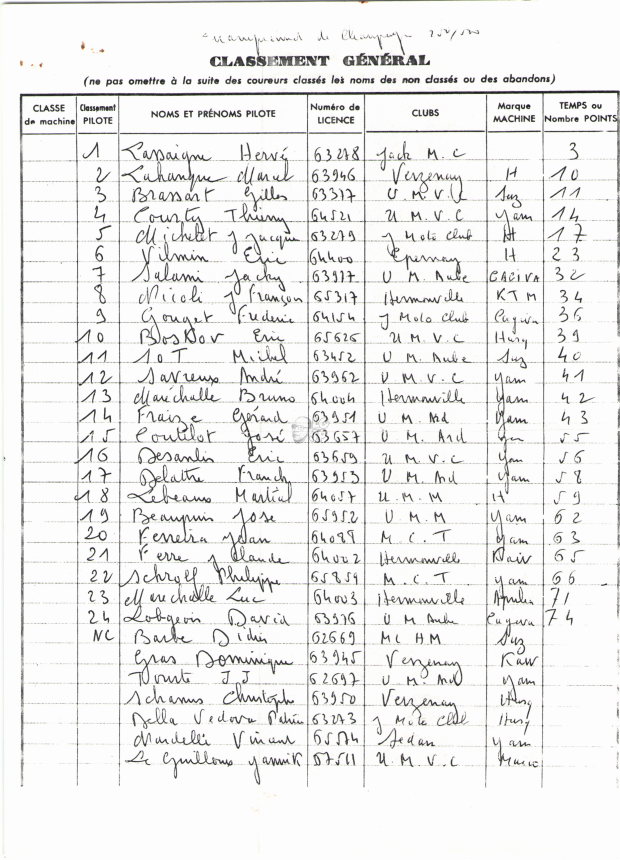 Championnat de Champagne 250/500
CLASSEMENT GÉNÉRAL
(ne pas omettre à la suite des coureurs classés les noms des non classés ou des abandons)
CLASSE de machine Classement PILOTE NOMS ET PRÉNOMS PILOTE Numéro de LICENCE CLUBS Marque MACHINE TEMPS ou Nombre POINTS
1 Lassaigne Hervé 63278 Jack M.C 3
2 Lahanque Marcel 63946 Verzenay H 10
3 Brassart Gilles 63317 U.M.V.C Suz 11
4 Courty Thierry 64521 U M.V.C yam 14
5 Michelet J Jacques 63279 J Moto Club H 17
6 Vilmin Eric 64400 Epernay H 23
7 Salami Jacky 63977 U M. Aube CAGIVA 32
8 Nicoli J François 65317 Hermonville KTM 34
9 Gouget Frederic 64154 J Moto Club Cagiva 36
10 Bosdov Eric 65626 U M.V.C Husq 39
11 SOT Michel 63452 U M. Aube Suz 40
12 Savreux André 63962 U M.V.C yam 41
13 Maréchalle Bruno 64004 Hermonville yam 42
14 Fraize Gérard 63951 U M. Ard yam 43
15 José 63657 U M. Ard 55
16 Desanlis Eric 63659 U M.V.C yam 56
17 Delattre Franck 63953 U M. Ard yam 58
18 Lebeaux Martial 64057 U.M.M H 59
19 Beaupuin Jose 65952 U M.M yam 62
20 Ferreira Jean 64088 M.C.T yam 63
21 Ferre J Claude 64002 Hermonville Kaw 65
22 Schroll Philippe 65859 M.C.T yam 66
23 Marechalle Luc 64003 Hermonville Aprilia 71
24 Lobgeois David 63976 U M Aube Cagiva 74
NC Barbe Didier 62669 MC HM Suz
Gras Dominique 63945 Verzenay Kaw
Tourte J.J 62697 U M. Ard yam
Schanus Christophe 63950 Verzenay Husq
Della Vedova 63273 J Moto Club Husq
Mardelli Vincent 65574 Sedan yam
Le Guillous Yannik 67511 U.M.V.C Maico